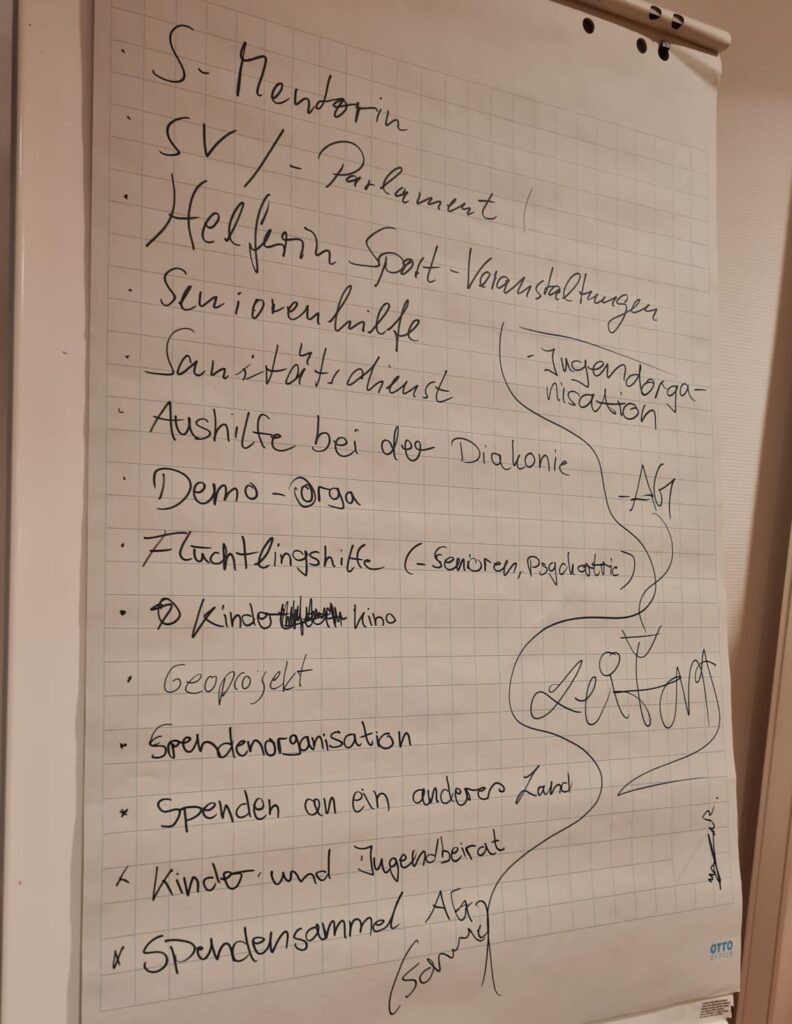 · S-Mentorin
· SV / - Parlament
· Helferin Sport-Veranstaltungen
· Seniorenhilfe
· Sanitätsdienst
· Aushilfe bei der Diakonie
· Demo-Orga
· Flüchtlingshilfe (-Senioren, Psychiatrie)
· Kinder kino
· Geoprojekt
· Spendenorganisation
* Spenden an ein anderes Land
Kinder- und Jugendbeirat
x Spendensammel AG
- Jugendorga-
nisation
- AG
OTTO
OFFICE